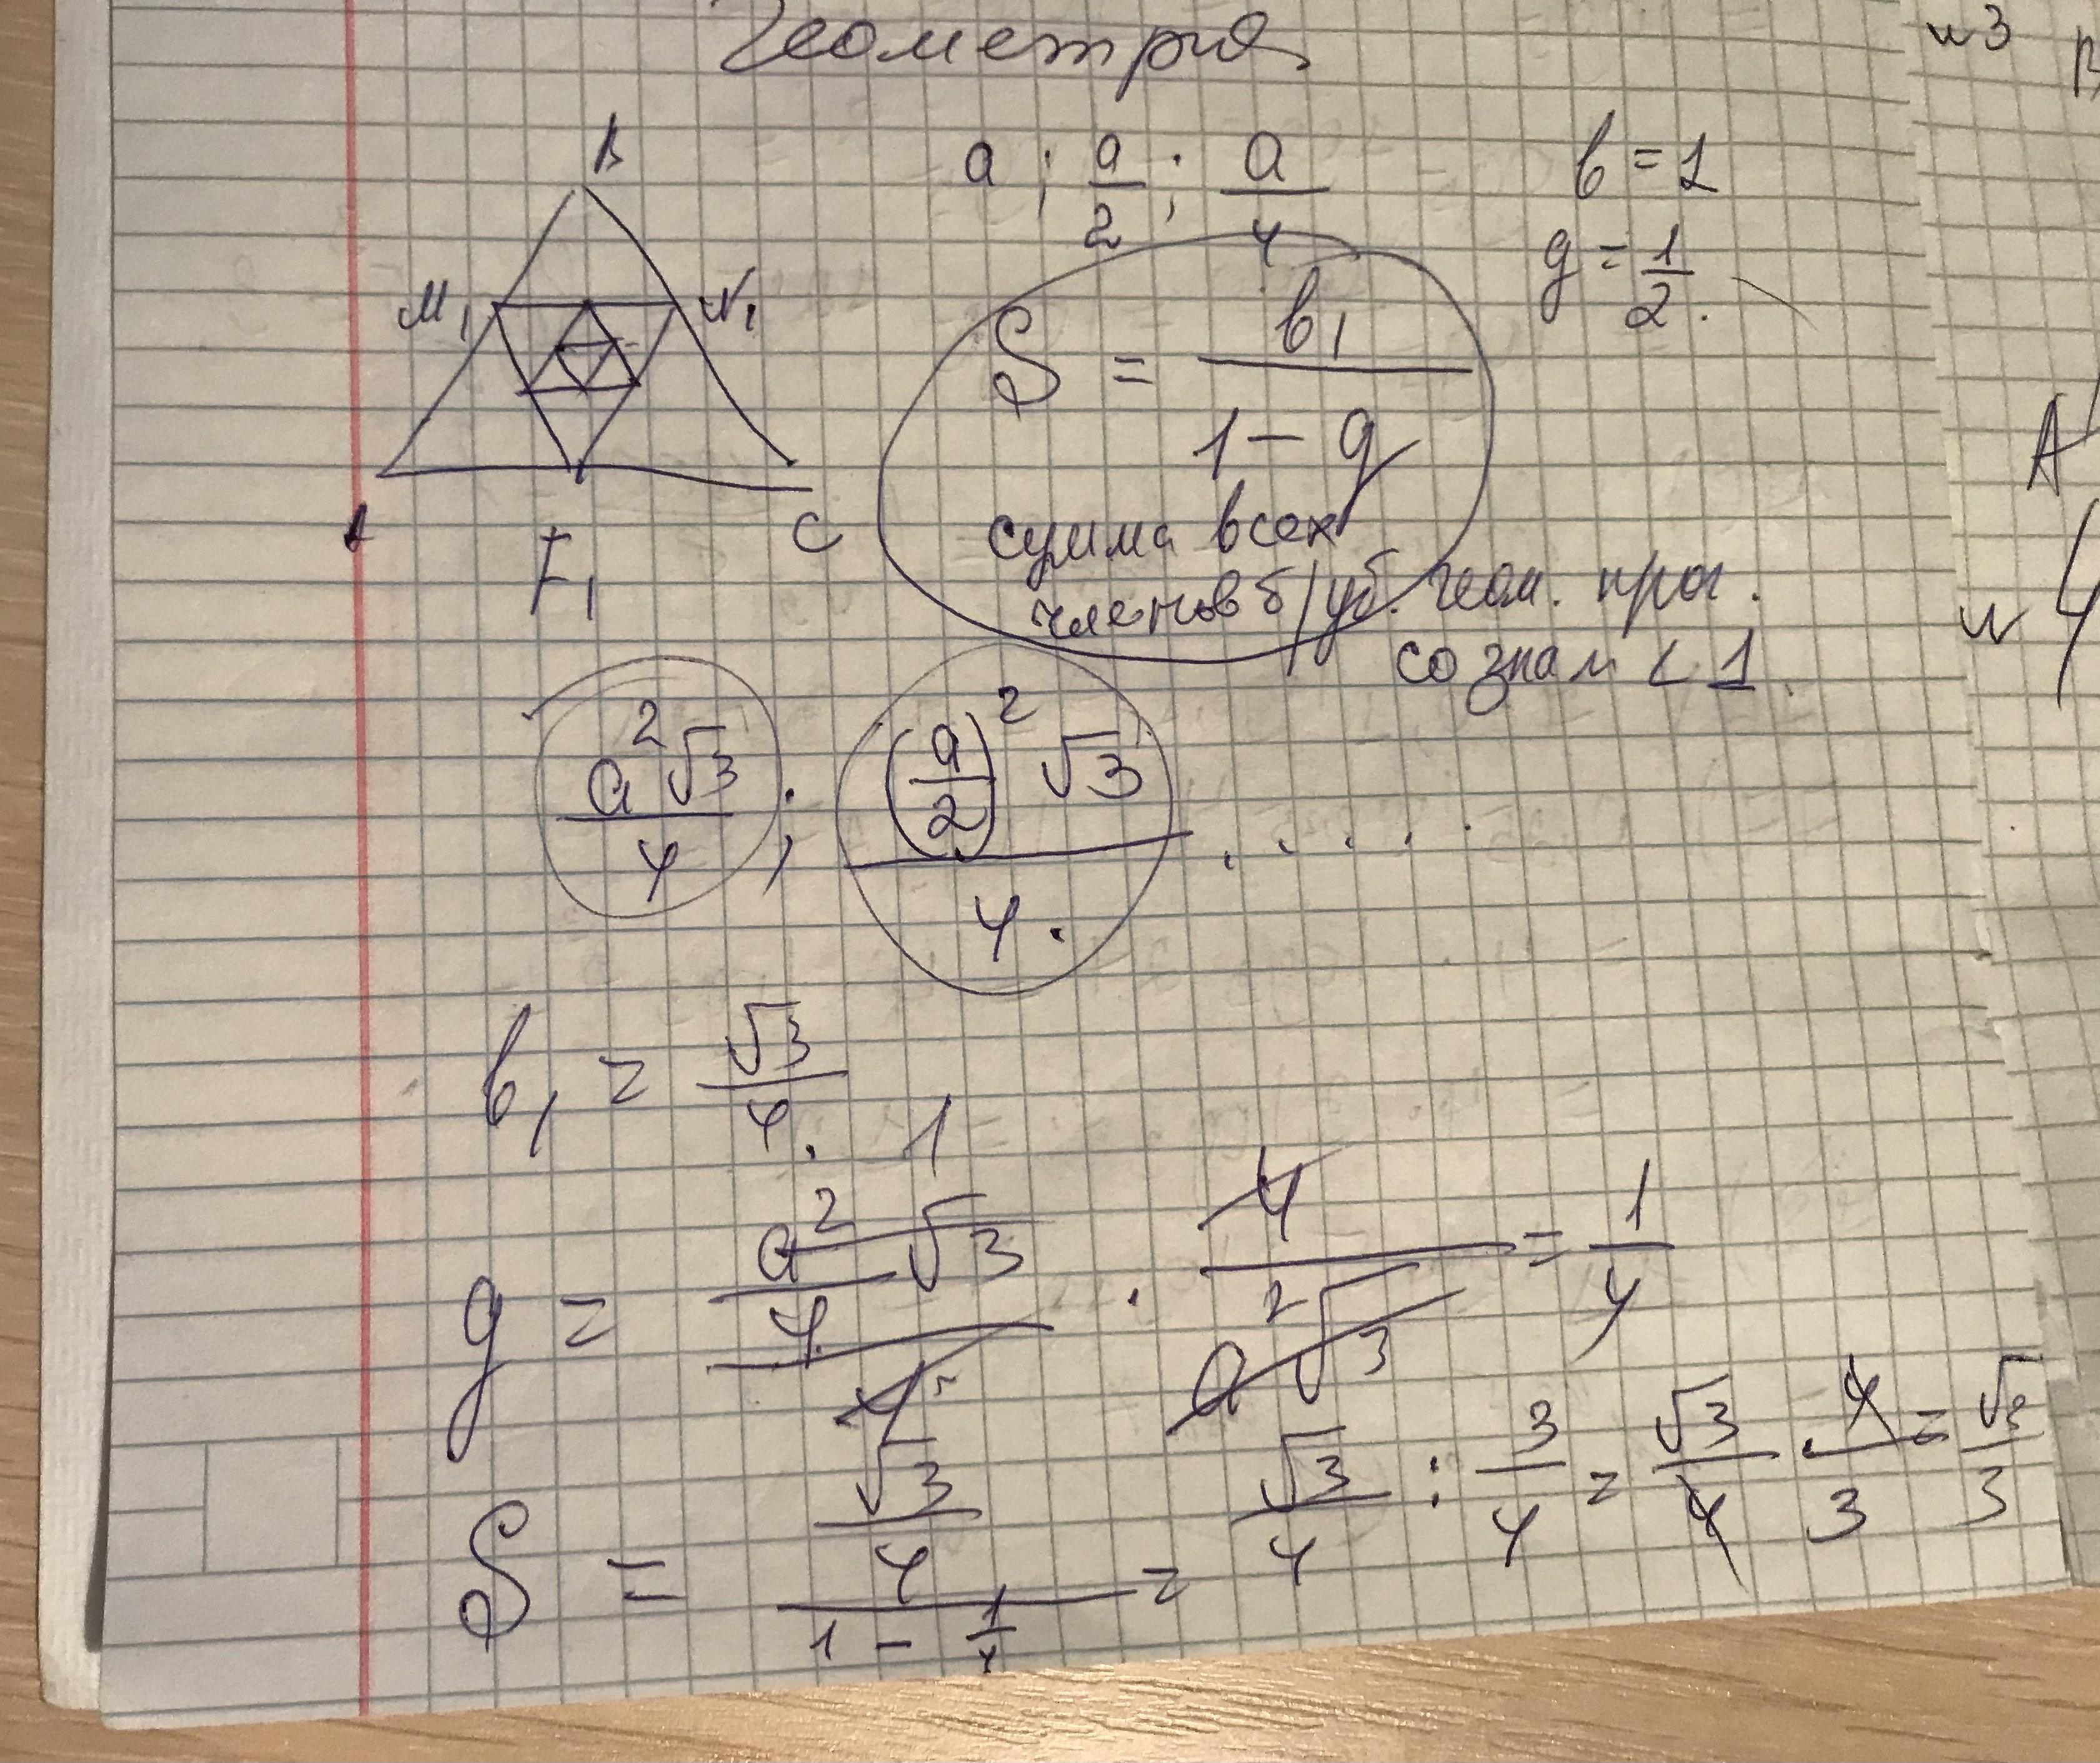 Геометрия
B
M₁ N₁
A F₁ C
a ; a/2 ; a/4
b = 1
q = 1/2.
S = b₁/(1 − q)
сумма всех
членов б/уб. геом. прог.
со знам < 1.
a²√3/4 ; (a/2)²√3/4. . . . .
b₁ = √3/4.
1
q = (a²/4 √3)/4 · 4/(a²√3) = 1/4
S = (√3/4)/(1 − 1/4) = √3/4 : 3/4 = √3/4 · 4/3 = √3/3
N3
A
N4